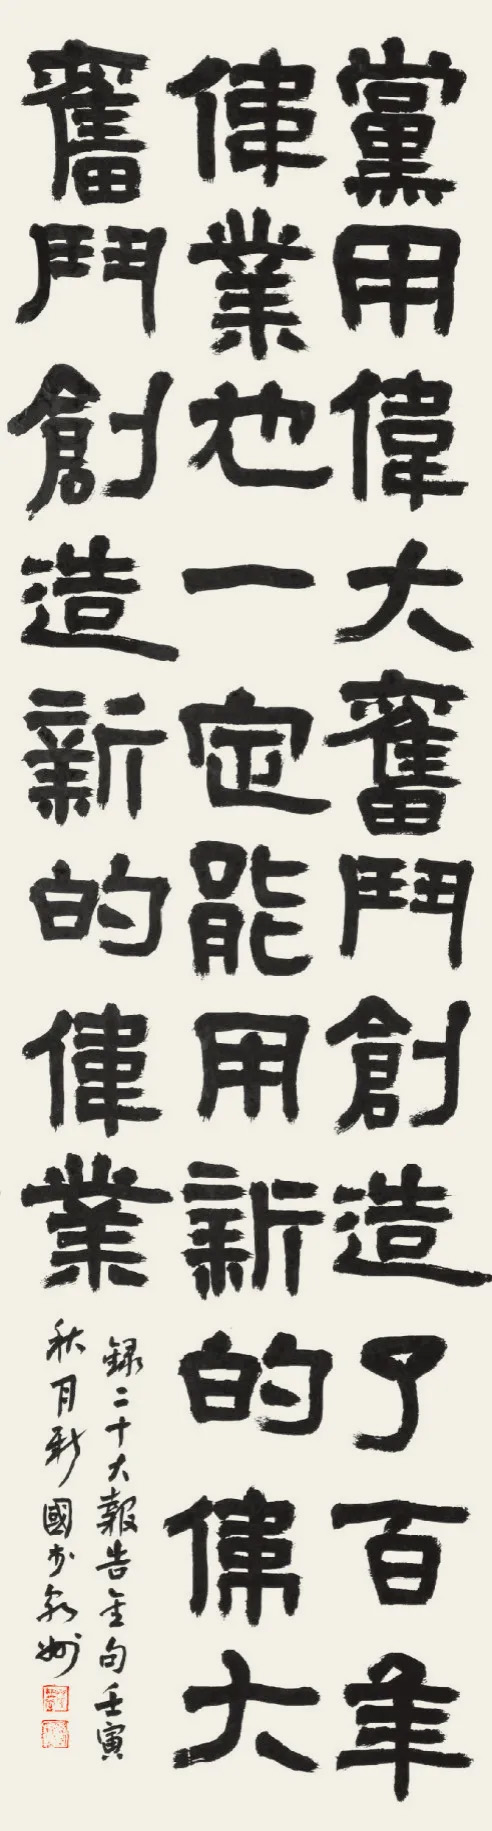 黨用偉大奮鬥創造了百年
偉業也一定能用新的偉大
奮鬥創造新的偉業
録二十大報告金句壬寅
秋月新國